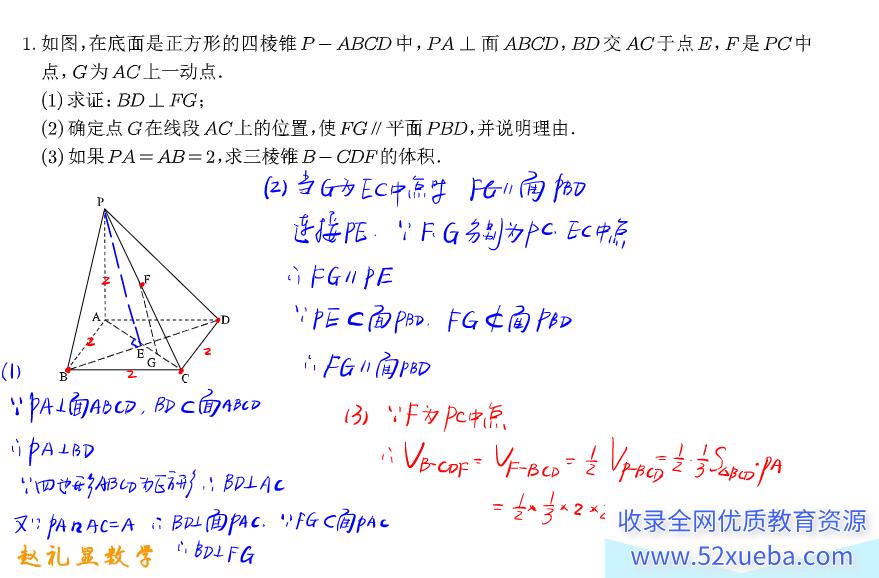 1. 如图,在底面是正方形的四棱锥 P－ABCD 中, PA⊥面 ABCD, BD 交 AC 于点 E, F 是 PC 中
点, G 为 AC 上一动点.
(1) 求证: BD⊥FG;
(2) 确定点 G 在线段 AC 上的位置,使 FG∥平面 PBD,并说明理由.
(3) 如果 PA=AB=2,求三棱锥 B－CDF 的体积.
(2) 当G为EC中点时 FG∥面PBD
连接PE. ∵F.G分别为PC.EC中点
∴FG∥PE
∵PE⊂面PBD. FG⊄面PBD
∴FG∥面PBD
P
F
2
A
D
2
E
2
G
B
2
C
(1)
∵PA⊥面ABCD, BD⊂面ABCD
∴PA⊥BD
∵四边形ABCD为正方形∴BD⊥AC
又∵PA∩AC=A ∴BD⊥面PAC. ∵FG⊂面PAC
∴BD⊥FG
(3) ∵F为PC中点
∴V_{B-CDF}=V_{F-BCD}=1/2 V_{P-BCD}=1/2·1/3 S_{△BCD}·PA
=1/2×1/3×2×2
赵礼显数学
收录全网优质教育资源
www.52xueba.com